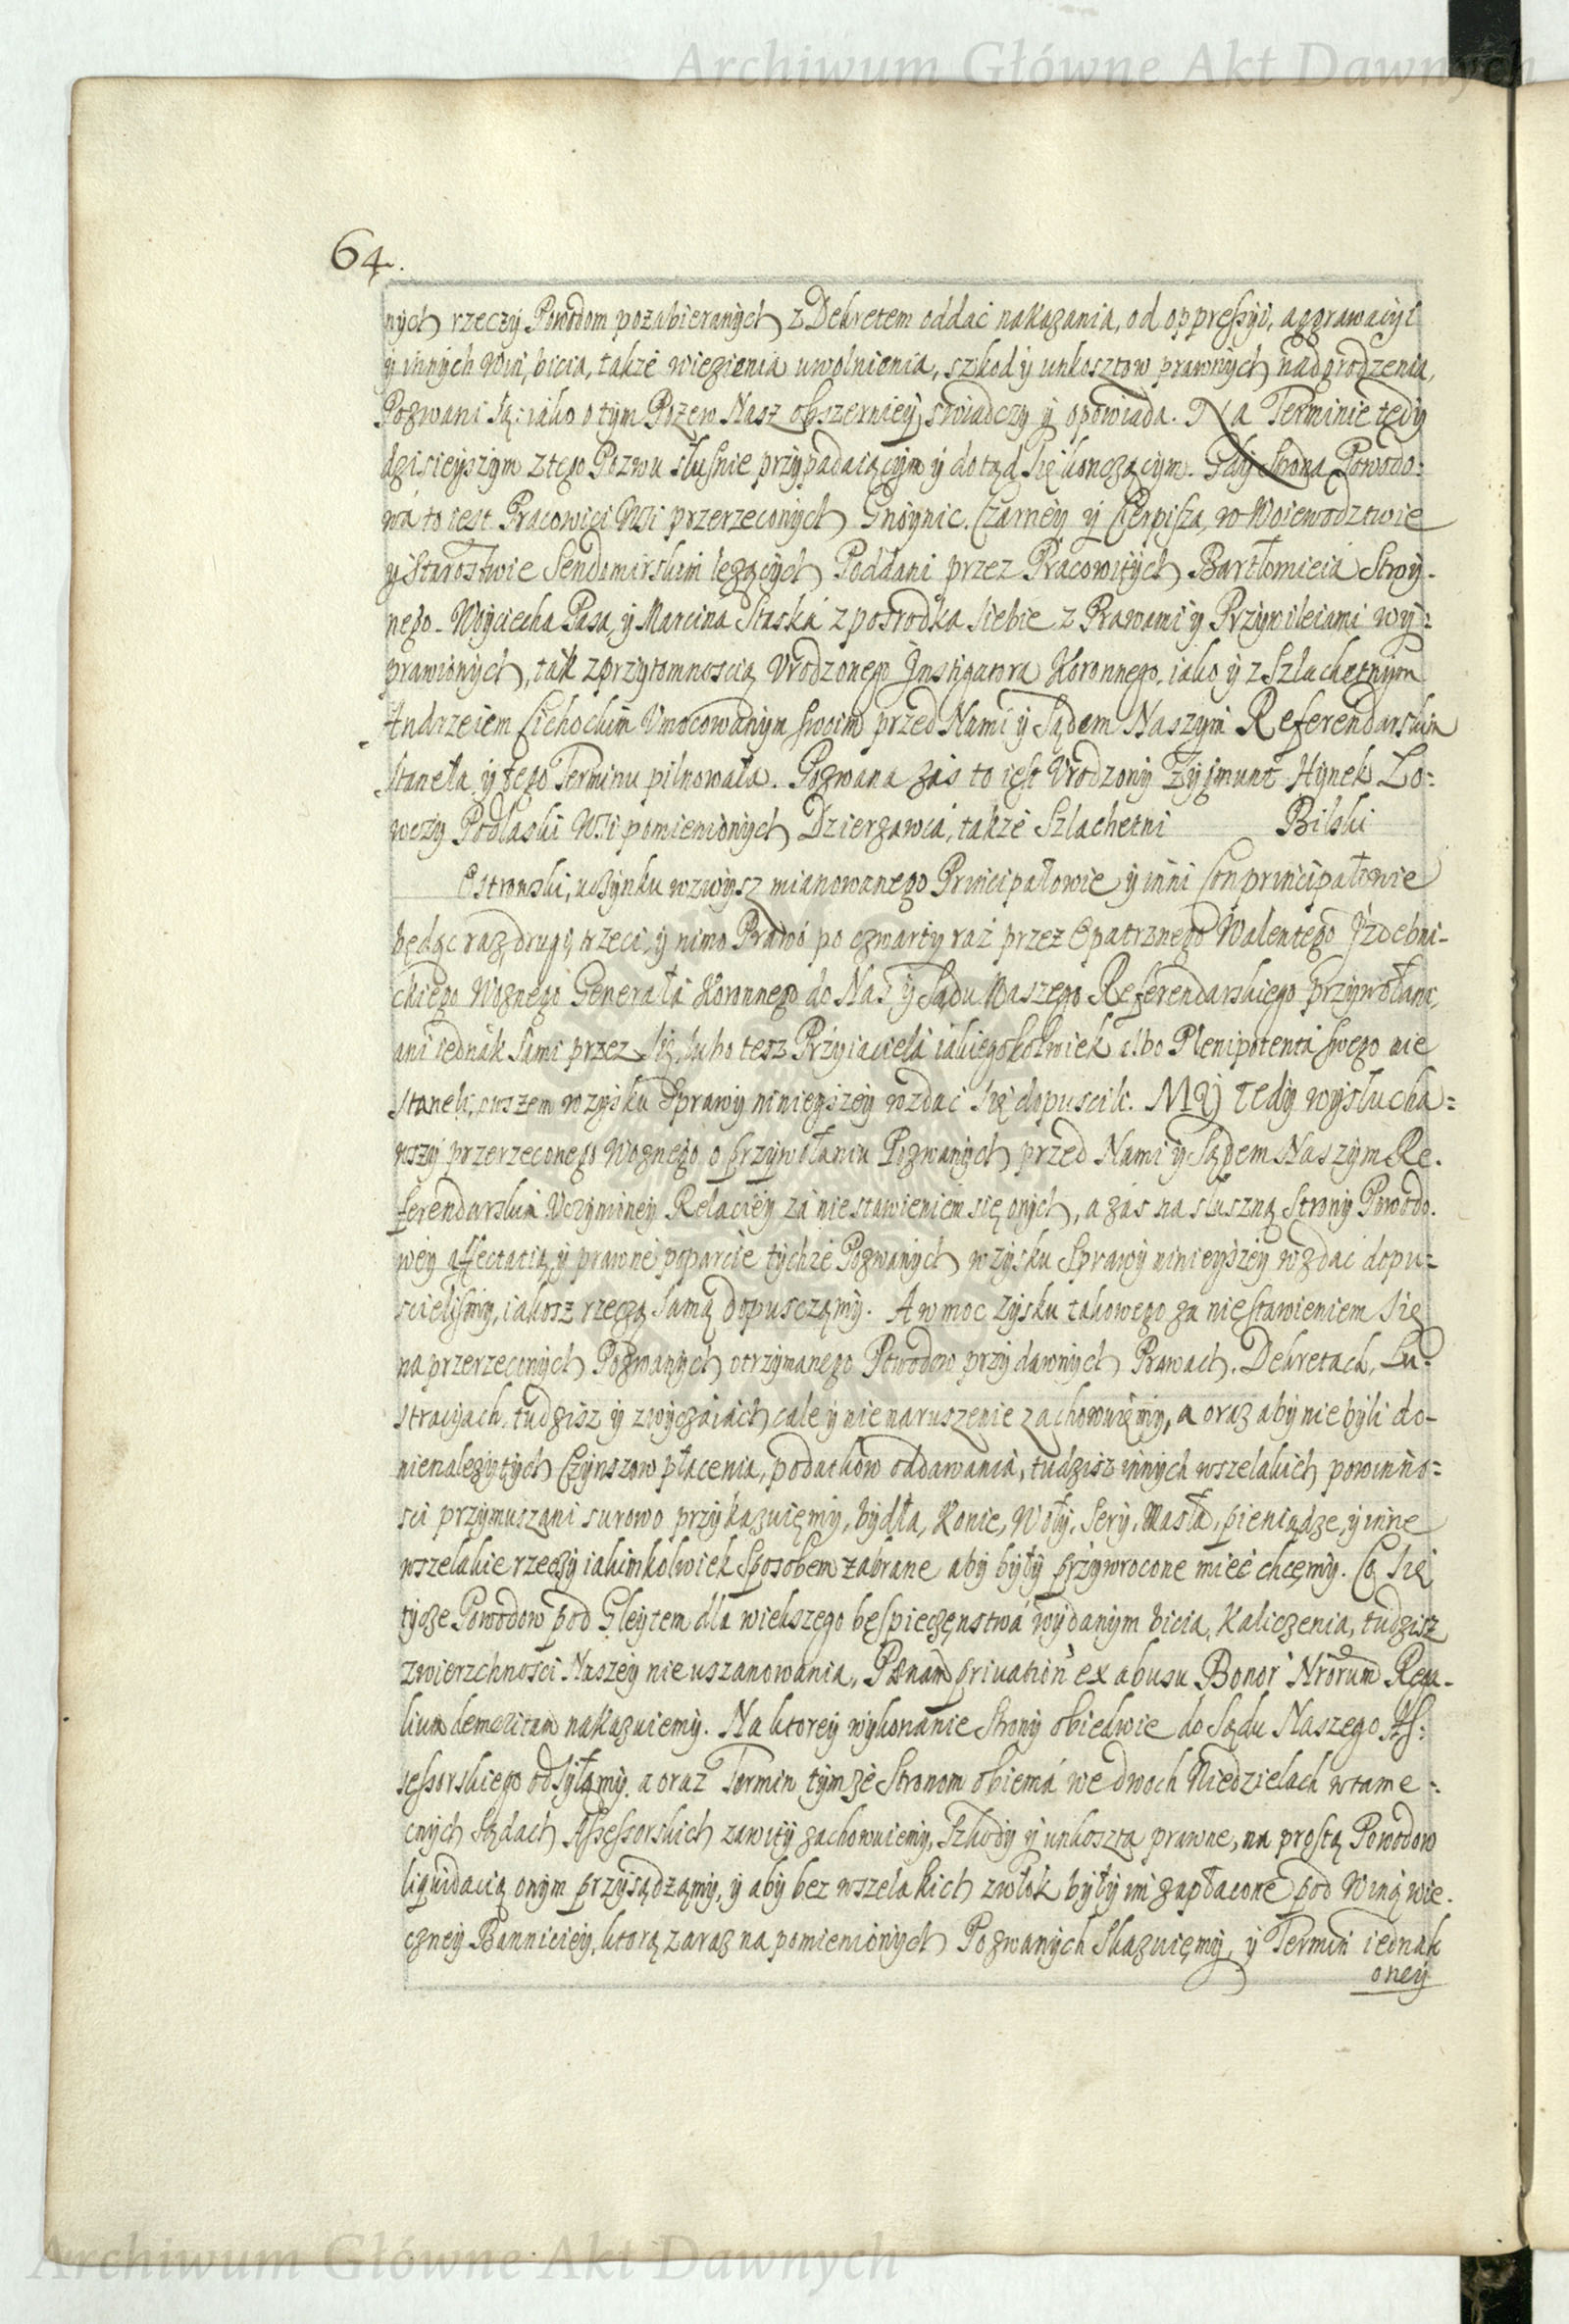 Archiwum Główne Akt Dawnych
64.
nych rzeczy Powodom pozabieranych z Dekretem oddać nakazania, od oppressyi, aggrawacyi
y innych win, bicia, także więzienia uwolnienia, szkod y unkosztow prawnych nadgrodzenia,
Pozwani są: iako o tym Pozew Nasz obszerniey swiadczy y opowiada. Na Terminie tedy
dzisieyszym z tego Pozwu słusnie przypadaiącym y dotąd się konczącym. Gdy Strona Powodo:
wa to iest Pracowici Wsi przerzeconych Gnoynic. Czarney y Cierpisza w Woiewodztwie
y Starostwie Sendomirskim lezących Poddani przez Pracowitych Bartłomieia Stroy-
nego. Woyciecha Pasa y Marcina Staska z posrodka siebie z Prawami y Przywileiami wy:
prawionych, tak z przytomnoscią Vrodzonego Instigatora Koronnego, iako y z Szlachetnym
Andrzeiem Cichockim Vmocowanym swoim przed Nami y Sądem Naszym Referendarskim
staneła y tego Terminu pilnowała. Pozwana zas to iest Vrodzony Zygmunt Hynek Ło:
wczy Podlaski Wsi pomienionych Dzierzawca, także Szlachetni Bilski
Ostrowski, uczynku wzwysz mianowanego Principałowie y inni Conprincipałowie
będąc raz, drugi, trzeci, y nimo Prawo po czwarty raz przez Opatrznego Walentego Jzdebni-
ckiego Woznego Generała Koronnego do Nas y Sądu Naszego Referendarskiego przywołani,
ani iednak sami przez się, lubo tesz Przyiaciela iakiegokolwiek albo Plenipotenta swego nie
staneli, owszem w zysku Sprawy ninieyszey wzdać się dopuscili. MY tedy wysłucha=
wszy przerzeconego Woznego o przywołaniu Pozwanych przed Nami y Sądem Naszym Re.
ferendarskim Vczynioney Relaciey za niestawieniem się onych, a zas na słuszną Strony Powodo.
wey affectatią y prawne poparcie tychże Pozwanych w zysku Sprawy ninieyszey wzdać dopu=
scielismy, iakosz rzeczą samą dopusczamy. A w moc zysku takowego za niestawieniem się
na przerzeconych Pozwanych otrzymanego Powodow przy dawnych Prawach. Dekretach, Lu:
stracyach, tudzisz y zwyczaiach cale y nie naruszenie zachowuięmy, a oraz aby nie byli do-
nienalezytych Czynszow płacenia, podatkow oddawania, tudzisz innych wszelakich powinno=
sci przymuszani surowo przykazuięmy, bydła, Konie, Woły, Sery, Masła, pieniądze, y inne
wszelakie rzeczy iakimkolwiek sposobem zabrane aby były przywrocone mieć chcęmy. Co się
tycze Powodow pod Gleytem dla wiekszego bespieczęnstwa wydanym bicia, Kaliczenia, tudzisz
zwierzchnosci Naszey nie uszanowania, Pœnam privation ex abusu Bonor Nrorum Rega-
lium demeritam nakazuiemy. Na ktorey wykonanie Strony obiedwie do Sądu Naszego As:
sessorskiego odsyłamy. a oraz Termin tymże Stronom obiema we dwoch Niedzielach w tame=
cnych Sądach Assessorskich zawity zachowuiemy, Szkody y unkoszta prawne, na prostą Powodow
liquidacią onym przysądzamy, y aby bez wszelakich zwłok były im zapłacone pod Winą wie.
czney Banniciey, ktorą zaraz na pomienionych Pozwanych Skazuięmy, y Termin iednak
oney
Archiwum Główne Akt Dawnych